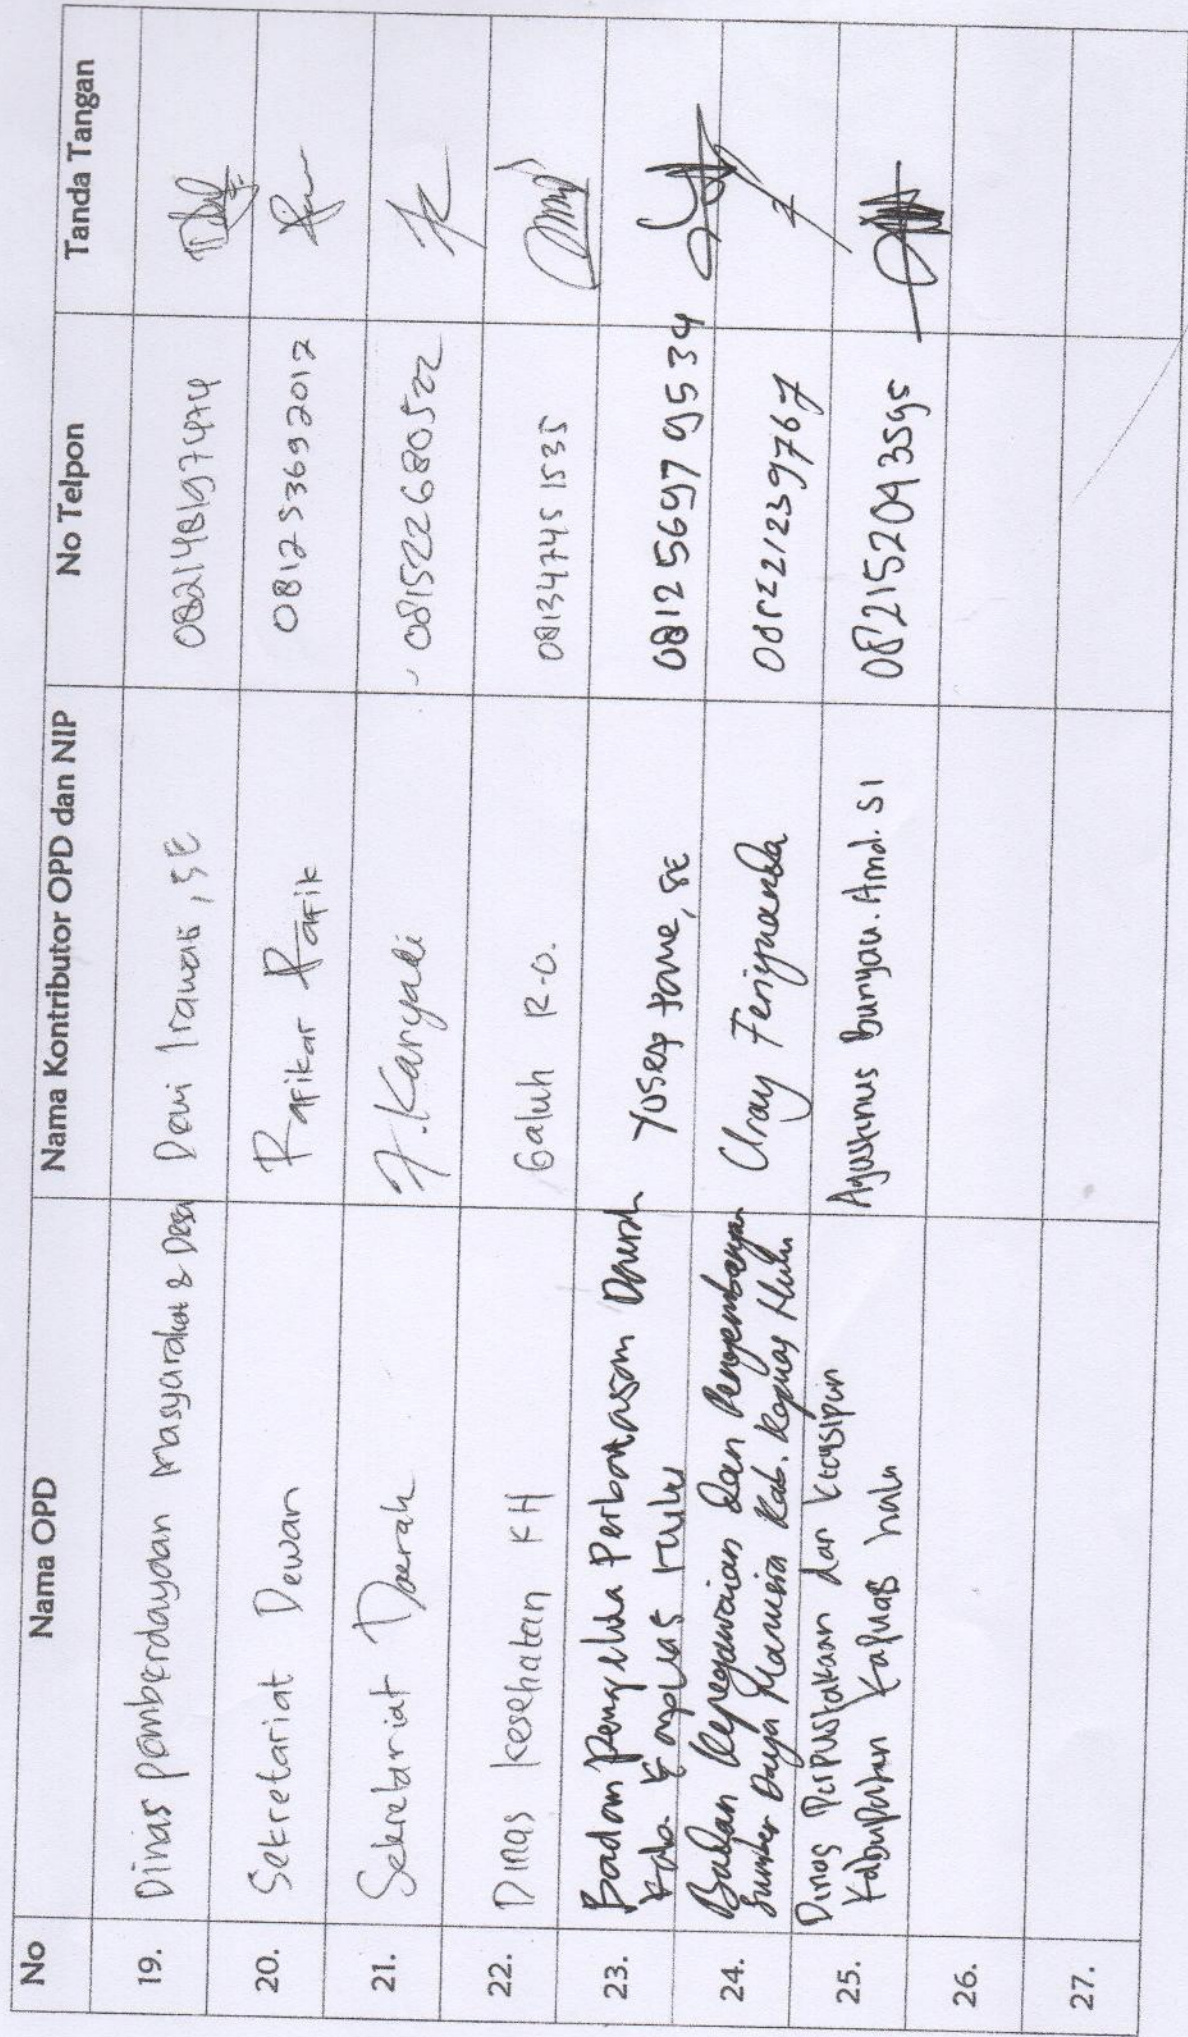 No Nama OPD Nama Kontributor OPD dan NIP No Telpon Tanda Tangan
19. Dinas Pemberdayaan Masyarakat & Desa Dewi Irawati, SE 082148197474
20. Sekretariat Dewan Rafikar Rafik 081253692012
21. Sekretariat Daerah F. Karyadi 081522680522
22. Dinas Kesehatan KH Galuh R.O. 081347451535
23. Badan Pengelola Perbatasan Daerah
Kab. Kapuas Hulu Yosep 081256979534
24. Badan Kepegawaian dan Pengembangan
Sumber Daya Manusia Kab. Kapuas Hulu Uray Feriynanda
25. Dinas Perpustakaan dan Kearsipan
Kabupaten Kapuas hulu Agustinus Bunyau. Amd. SI 082152043595
26.
27.